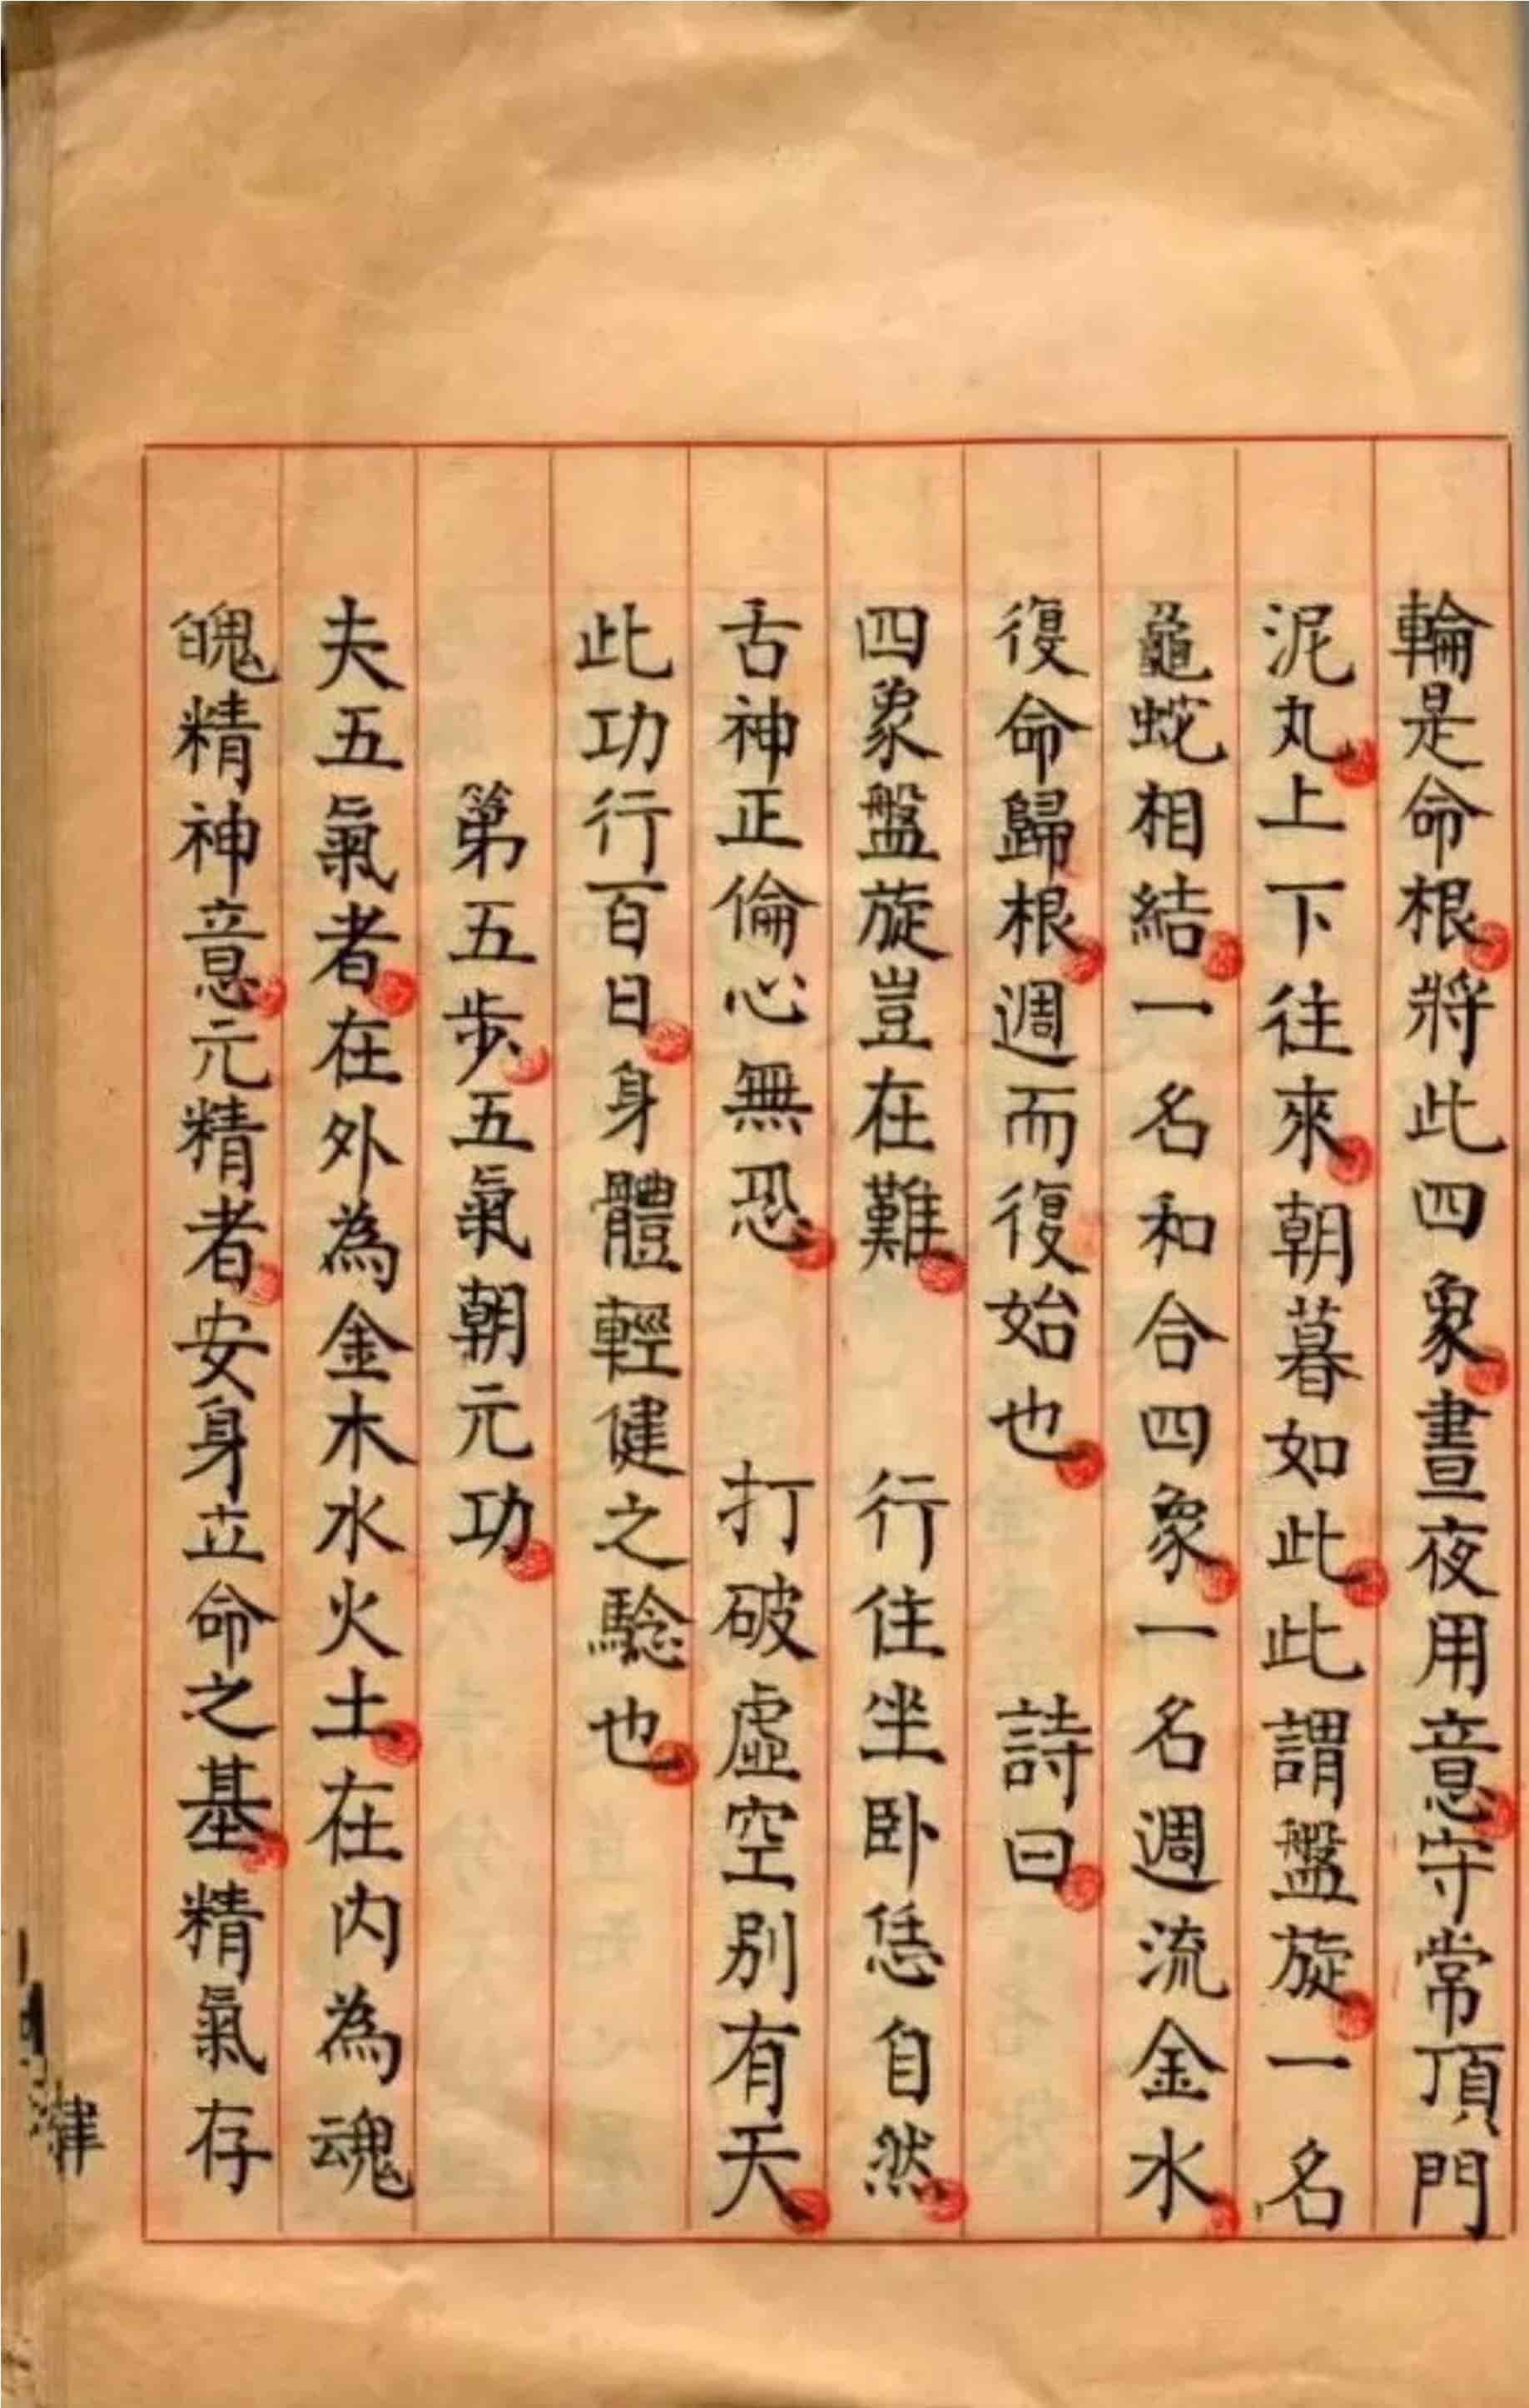 輪是命根將此四象晝夜用意守常頂門
泥丸上下往來朝暮如此此謂盤旋一名
龜蛇相結一名和合四象一名週流金水
復命歸根週而復始也 詩曰
四象盤旋豈在難 行住坐卧恁自然
舌神正倫心無恐 打破虛空別有天
此功行百日身體輕健之騐也
第五步五氣朝元功
夫五氣者在外為金木水火土在内為魂
魄精神意元精者安身立命之基精氣存